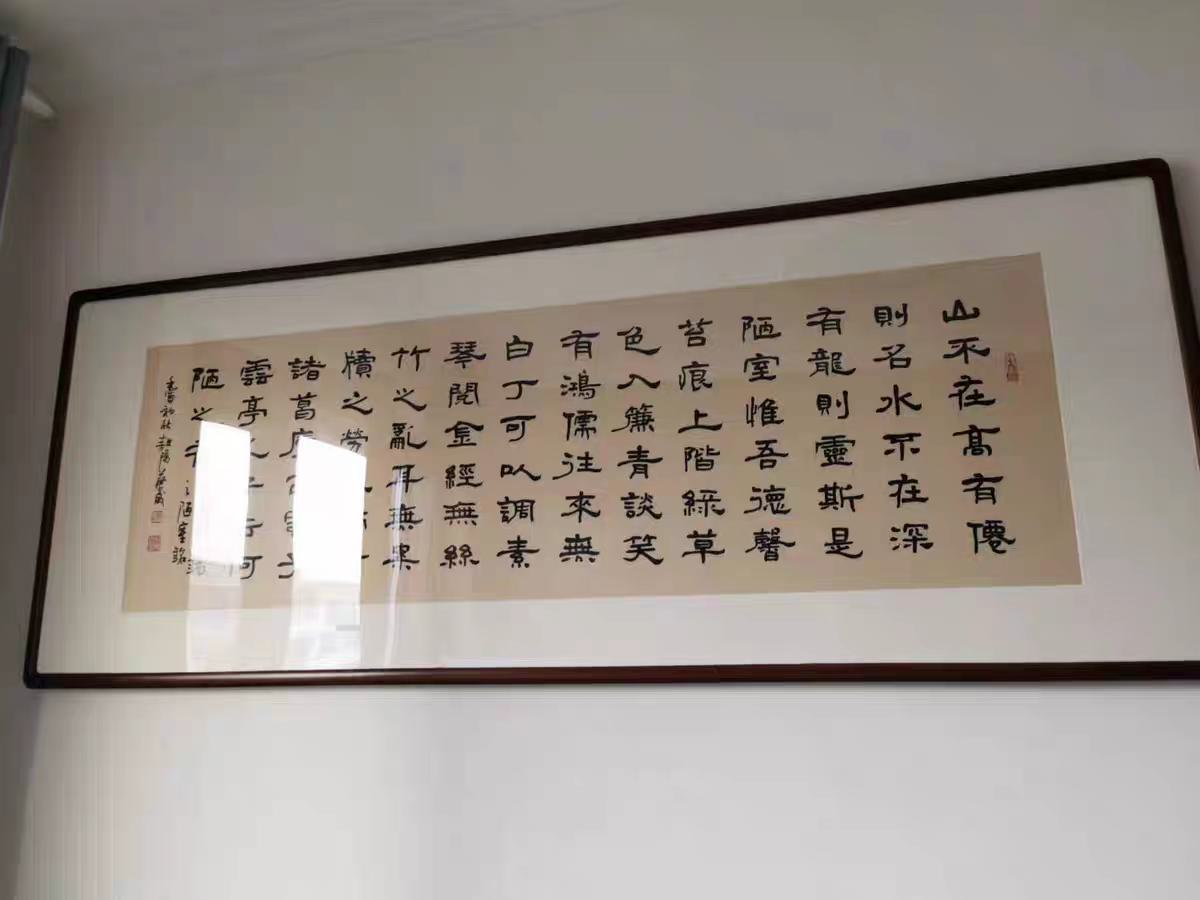 山不在高有僊
則名水不在深
有龍則靈斯是
陋室惟吾德馨
苔痕上階綠草
色入簾青談笑
有鴻儒往來無
白丁可以調素
琴閱金經無絲
竹之亂耳無案
牘之勞
諸葛廬
雲亭子云何
陋之有 陋室銘
初秋